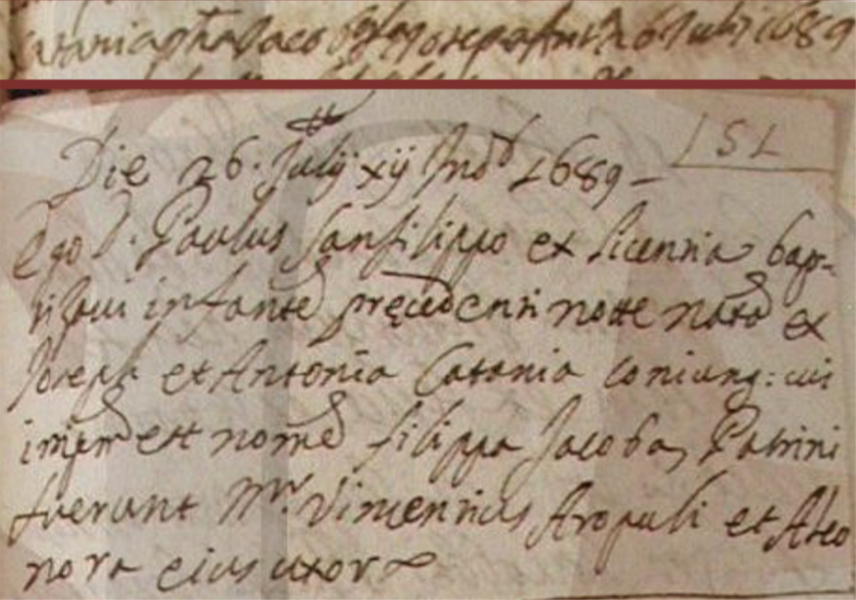 Catania pha Jacoba Joseph et Ant.a 26 Iulii 1689
LSL
Die 26. Julij xij Ind 1689 –
Ego D. Paulus Sanfilippo ex licentia bap-
tizavi infante precedenti notte nato ex
Joseph et Antonia Catania coniung: cui
impm est nome filippa Jacoba, Patrini
fuerunt Mr. Vincentius Aropuli et Aleo
nora eius uxor